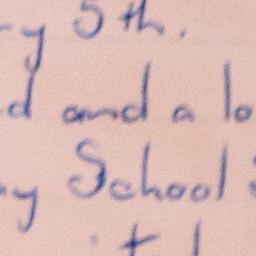 y 5th.
d and a lo
y School